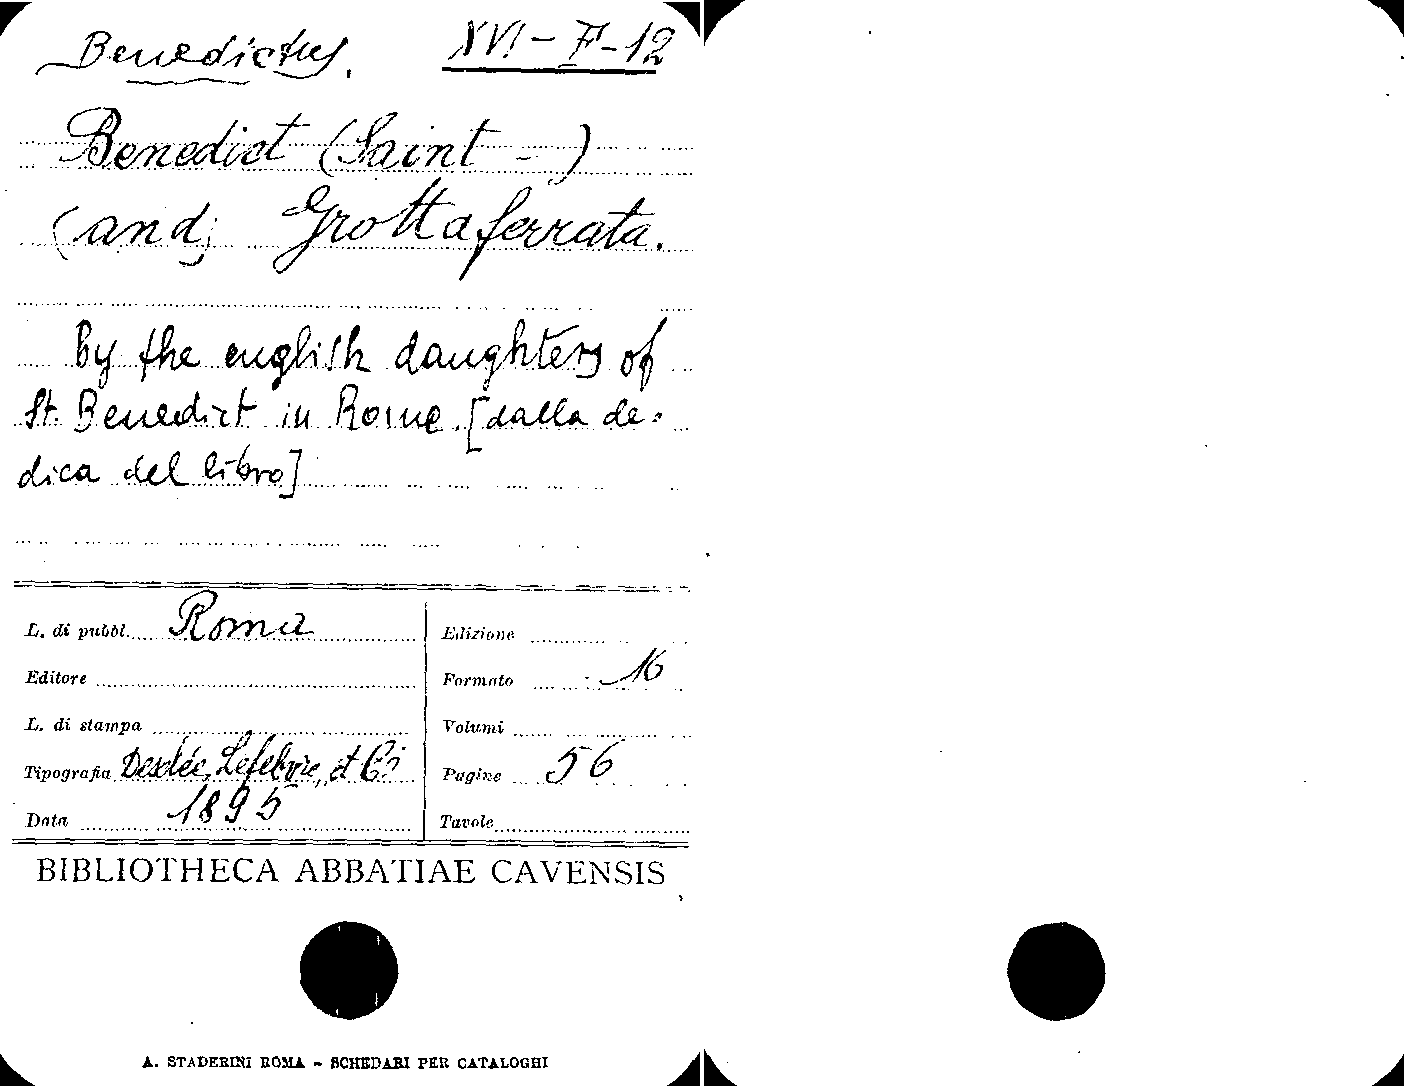 Benedictus.
XVI - F - 12
Benedict (Saint - )
(and) Grottaferrata.
by the english daughters of
St. Benedict in Rome. [dalla de=
dica del libro]
L. di pubbl. Roma
Editore
L. di stampa
Tipografia Desclée, Lefebvre, et Ci
Data 1895
Edizione
Formato 16
Volumi
Pagine 56
Tavole
BIBLIOTHECA ABBATIAE CAVENSIS
A. STADERINI ROMA - SCHEDARI PER CATALOGHI